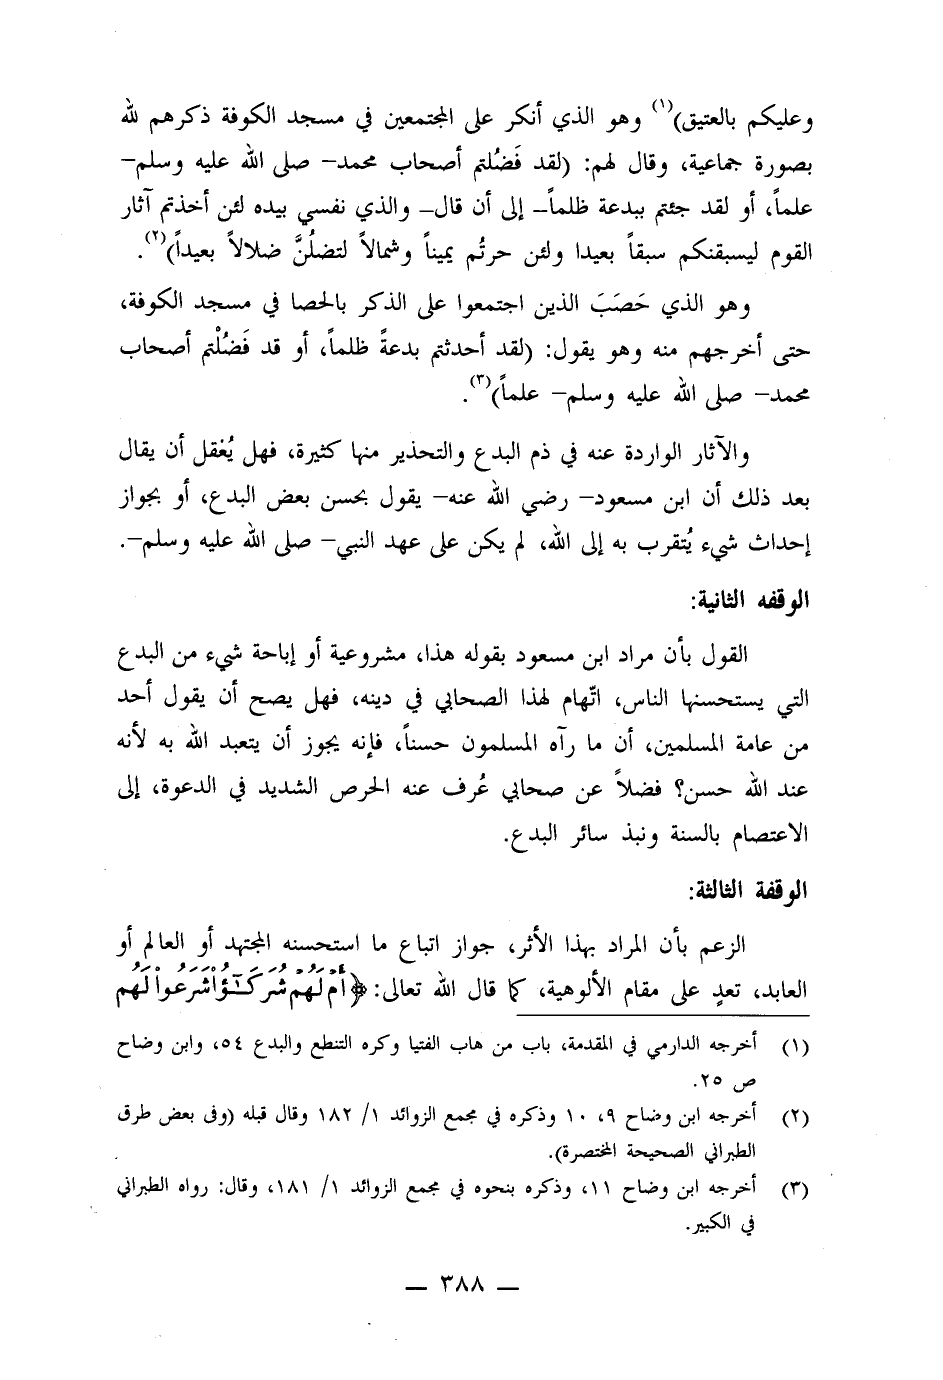 وعليكم بالعتيق)(١) وهو الذي أنكر على المجتمعين في مسجد الكوفة ذكرهم لله
بصورة جماعية، وقال لهم: (لقد فَضُلتم أصحاب محمد– صلى الله عليه وسلم–
علماً، أو لقد جئتم ببدعة ظلماً– إلى أن قال– والذي نفسي بيده لئن أخذتم آثار
القوم ليسبقنكم سبقاً بعيدا ولئن حرتُم يميناً وشمالاً لتضلُنَّ ضلالاً بعيداً)(٢).
وهو الذي حَصَبَ الذين اجتمعوا على الذكر بالحصا في مسجد الكوفة،
حتى أخرجهم منه وهو يقول: (لقد أحدثتم بدعةً ظلماً، أو قد فَضُلْتم أصحاب
محمد– صلى الله عليه وسلم– علماً)(٣).
والآثار الواردة عنه في ذم البدع والتحذير منها كثيرة، فهل يُعْقل أن يقال
بعد ذلك أن ابن مسعود– رضي الله عنه– يقول بحسن بعض البدع، أو بجواز
إحداث شيء يُتقرب به إلى الله، لم يكن على عهد النبي– صلى الله عليه وسلم–.
الوقفه الثانية:
القول بأن مراد ابن مسعود بقوله هذا، مشروعية أو إباحة شيء من البدع
التي يستحسنها الناس، اتّهام لهذا الصحابي في دينه، فهل يصح أن يقول أحد
من عامة المسلمين، أن ما رآه المسلمون حسناً، فإنه يجوز أن يتعبد الله به لأنه
عند الله حسن؟ فضلاً عن صحابي عُرف عنه الحرص الشديد في الدعوة، إلى
الاعتصام بالسنة ونبذ سائر البدع.
الوقفة الثالثة:
الزعم بأن المراد بهذا الأثر، جواز اتباع ما استحسنه المجتهد أو العالم أو
العابد، تعدٍ على مقام الألوهية، كما قال الله تعالى: ﴿أَمْ لَهُمْ شُرَكَٰٓؤُا۟ شَرَعُوا۟ لَهُم
(١) أخرجه الدارمي في المقدمة، باب من هاب الفتيا وكره التنطع والبدع ٥٤، وابن وضاح
ص ٢٥.
(٢) أخرجه ابن وضاح ٩، ١٠ وذكره في مجمع الزوائد ١/ ١٨٢ وقال قبله (وفى بعض طرق
الطبراني الصحيحة المختصرة).
(٣) أخرجه ابن وضاح ١١، وذكره بنحوه في مجمع الزوائد ١/ ١٨١، وقال: رواه الطبراني
في الكبير.
— ٣٨٨ —